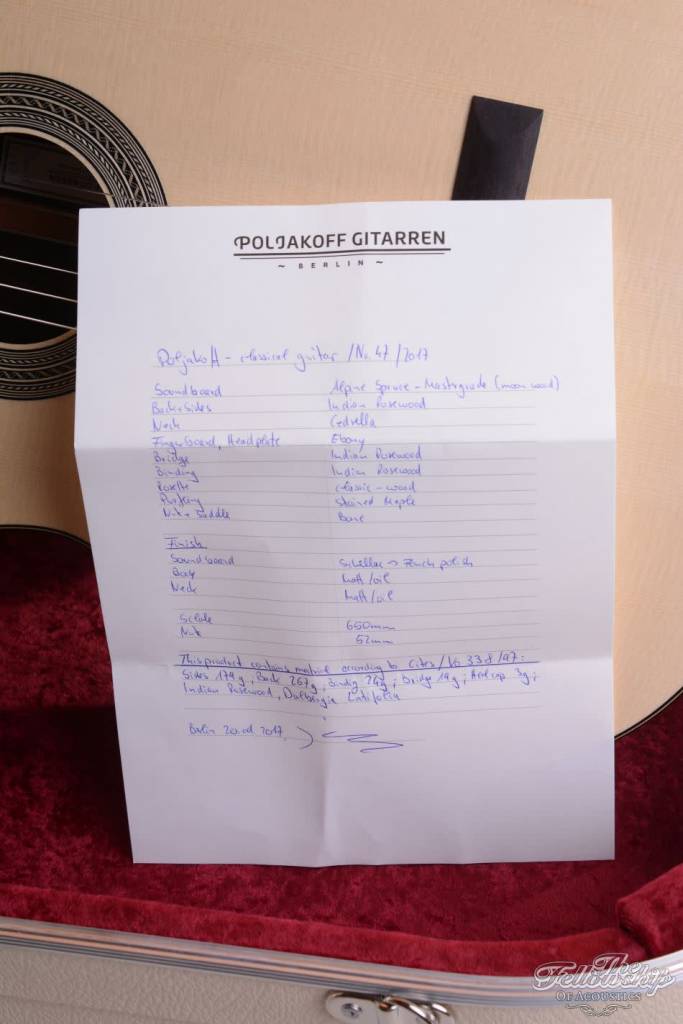 POLJAKOFF GITARREN
~ BERLIN ~
Poljakoff - classical guitar / No. 47 / 2017
Soundboard Alpine Spruce - Mastergrade (moon wood)
Back+Sides Indian Rosewood
Neck Cedrella
Fingerboard, Headplate Ebony
Bridge Indian Rosewood
Binding Indian Rosewood
Rosette classic - wood
Purfling Stained Maple
Nut + Saddle Bone
Finish
Soundboard Schellac -> French polish
Body matt/oil
Neck matt/oil
Scale 650mm
Nut 52mm
This product contains material according to Cites / VO 338/97:
Sides 179g, Back 267g, Binding 24g; Bridge 19g; 3g;
Indian Rosewood, Dalbergia Latifolia
Berlin 2017
The
Fellowship
OF ACOUSTICS